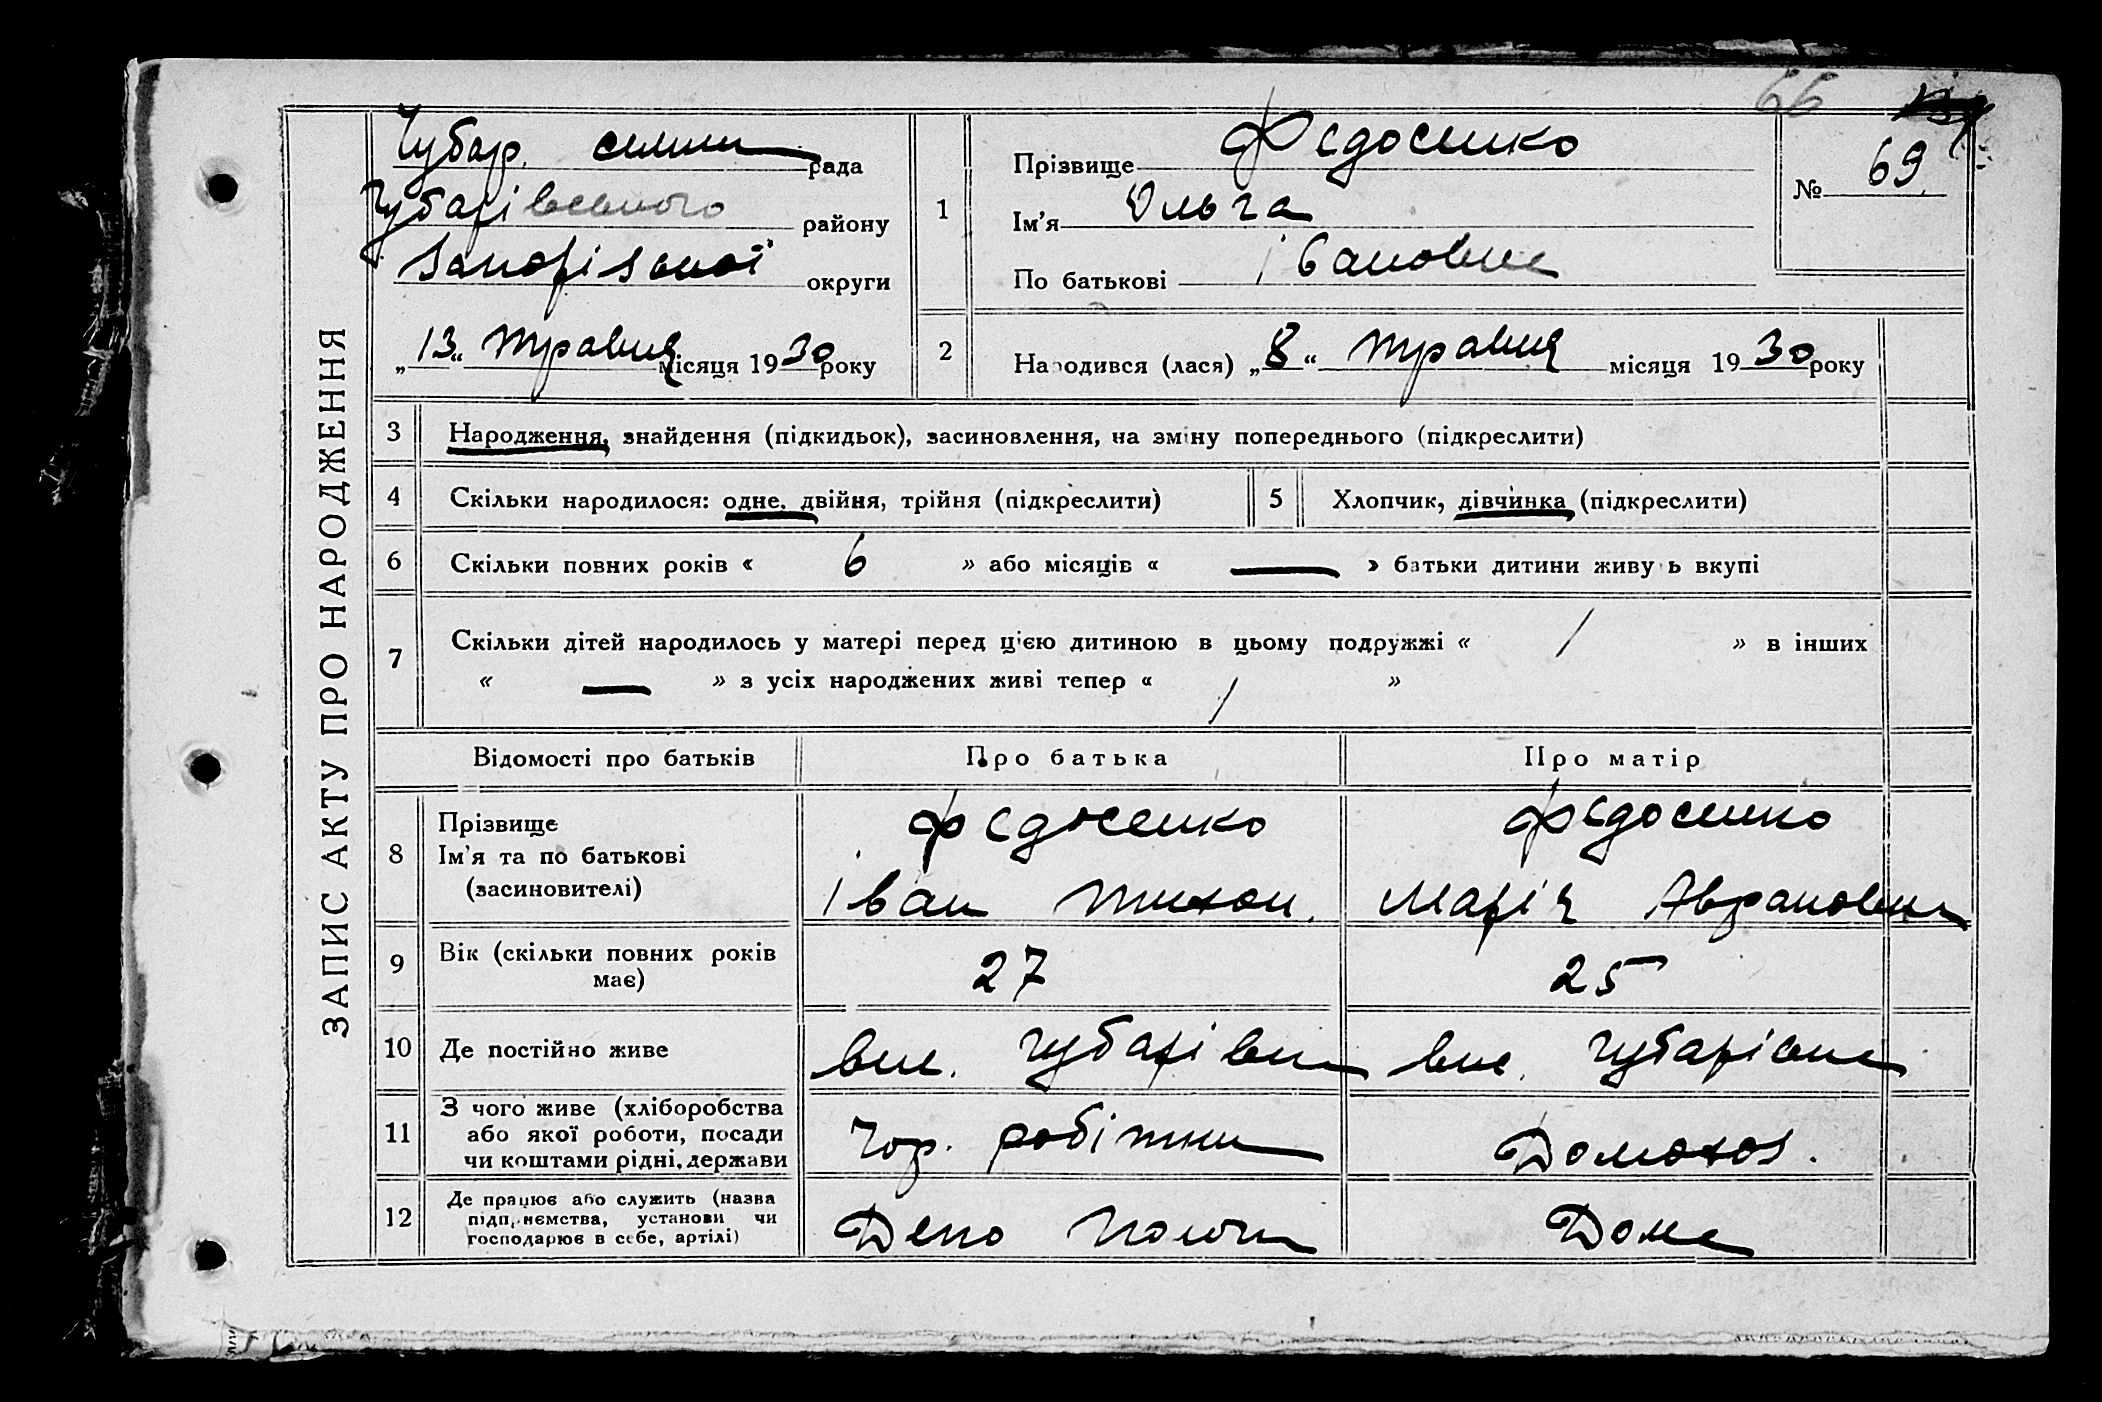 66
ЗАПИС АКТУ ПРО НАРОДЖЕННЯ
Чубар. рада
Чубарівського району
Запорізької округи
„13“ Травня місяця 1930 року
1
Прізвище Федосенко
Ім'я Ольга
По батькові Івановна
№ 69
2
Народився (лася) „8“ Травня місяця 1930 року
3 Народження, знайдення (підкидьок), засиновлення, на зміну попереднього (підкреслити)
4 Скільки народилося: одне, двійня, трійня (підкреслити)
5 Хлопчик, дівчинка (підкреслити)
6 Скільки повних років « 6 » або місяців « — » батьки дитини живуть вкупі
7 Скільки дітей народилось у матері перед цією дитиною в цьому подружжі « 1 » в інших
« — » з усіх народжених живі тепер « 1 »
Відомості про батьків Про батька Про матір
8
Прізвище
Ім'я та по батькові
(засиновителі)
Федосенко
Іван Тихон.
Федосенко
Марія
9 Вік (скільки повних років
має)
27
25
10 Де постійно живе
Чубарівка
Чубарівка
11 З чого живе (хліборобства
або якої роботи, посади
чи коштами рідні, держави
Чор. робітник
Домохоз.
12 Де працює або служить (назва
підприємства, установи чи
господарює в себе, артілі)
Депо Пологи
Дома